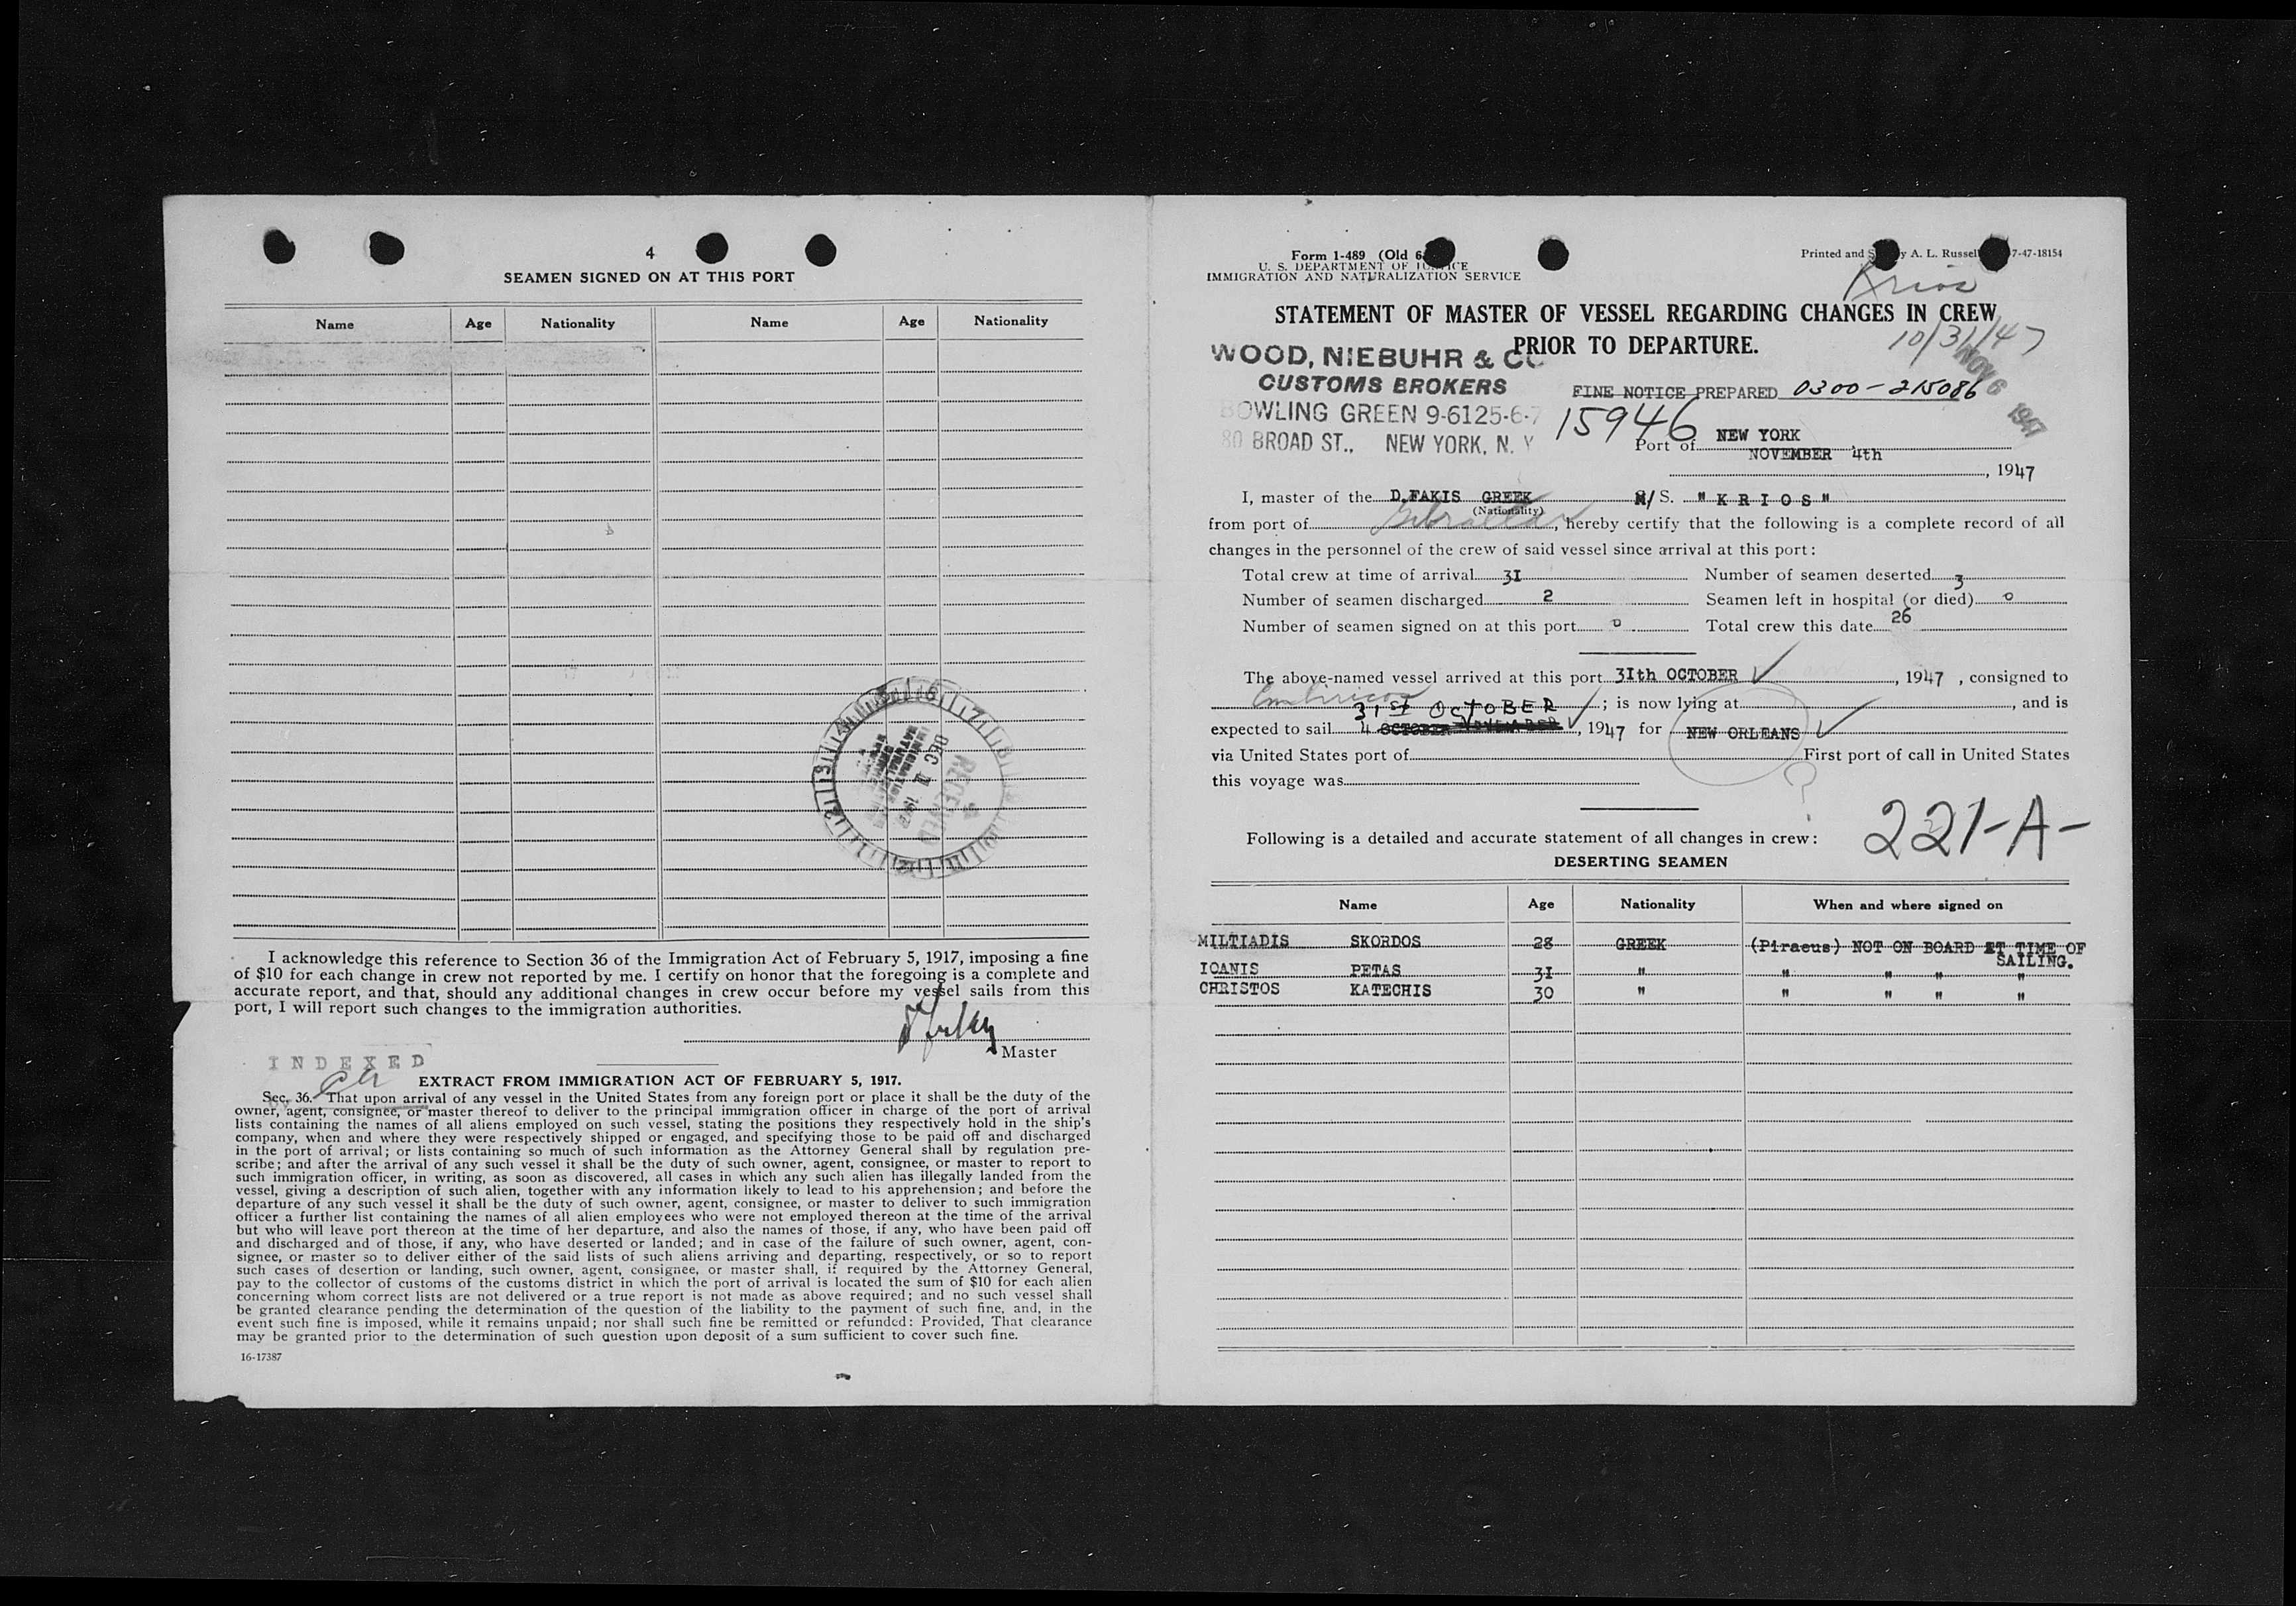 4
SEAMEN SIGNED ON AT THIS PORT
Name Age Nationality Name Age Nationality
RECEIVED
DEC 1947
IMMIGRATION
I acknowledge this reference to Section 36 of the Immigration Act of February 5, 1917, imposing a fine
of $10 for each change in crew not reported by me. I certify on honor that the foregoing is a complete and
accurate report, and that, should any additional changes in crew occur before my vessel sails from this
port, I will report such changes to the immigration authorities.
Master
INDEXED
EXTRACT FROM IMMIGRATION ACT OF FEBRUARY 5, 1917.
Sec. 36. That upon arrival of any vessel in the United States from any foreign port or place it shall be the duty of the
owner, agent, consignee, or master thereof to deliver to the principal immigration officer in charge of the port of arrival
lists containing the names of all aliens employed on such vessel, stating the positions they respectively hold in the ship's
company, when and where they were respectively shipped or engaged, and specifying those to be paid off and discharged
in the port of arrival; or lists containing so much of such information as the Attorney General shall by regulation pre-
scribe; and after the arrival of any such vessel it shall be the duty of such owner, agent, consignee, or master to report to
such immigration officer, in writing, as soon as discovered, all cases in which any such alien has illegally landed from the
vessel, giving a description of such alien, together with any information likely to lead to his apprehension; and before the
departure of any such vessel it shall be the duty of such owner, agent, consignee, or master to deliver to such immigration
officer a further list containing the names of all alien employees who were not employed thereon at the time of the arrival
but who will leave port thereon at the time of her departure, and also the names of those, if any, who have been paid off
and discharged and of those, if any, who have deserted or landed; and in case of the failure of such owner, agent, con-
signee, or master so to deliver either of the said lists of such aliens arriving and departing, respectively, or so to report
such cases of desertion or landing, such owner, agent, consignee, or master shall, if required by the Attorney General,
pay to the collector of customs of the customs district in which the port of arrival is located the sum of $10 for each alien
concerning whom correct lists are not delivered or a true report is not made as above required; and no such vessel shall
be granted clearance pending the determination of the question of the liability to the payment of such fine, and, in the
event such fine is imposed, while it remains unpaid; nor shall such fine be remitted or refunded: Provided, That clearance
may be granted prior to the determination of such question upon deposit of a sum sufficient to cover such fine.
16-17387
Form 1-489 (Old 6
U. S. DEPARTMENT OF JUSTICE
IMMIGRATION AND NATURALIZATION SERVICE
Printed and S y A. L. Russell 7-47-18154
Krios
STATEMENT OF MASTER OF VESSEL REGARDING CHANGES IN CREW
PRIOR TO DEPARTURE.
10/31/47
NOV 6 1947
WOOD, NIEBUHR & CO
CUSTOMS BROKERS
BOWLING GREEN 9-6125-6-7
80 BROAD ST., NEW YORK, N. Y
FINE NOTICE PREPARED 0300-215086
15946
Port of NEW YORK
NOVEMBER 4th
, 1947
I, master of the D.FAKIS GREEK M/S. "KRIOS"
(Nationality)
from port of Gibraltar, hereby certify that the following is a complete record of all
changes in the personnel of the crew of said vessel since arrival at this port:
Total crew at time of arrival 3I Number of seamen deserted 3
Number of seamen discharged 2 Seamen left in hospital (or died) 0
Number of seamen signed on at this port 0 Total crew this date 26
The above-named vessel arrived at this port 3Ith OCTOBER, 1947, consigned to
Embiricos ; is now lying at , and is
31st OCTOBER
expected to sail 4 OCTOBER NOVEMBER, 1947 for NEW ORLEANS
via United States port of First port of call in United States
this voyage was
?
Following is a detailed and accurate statement of all changes in crew:
221-A-
DESERTING SEAMEN
Name Age Nationality When and where signed on
MILTIADIS SKORDOS 28 GREEK (Piraeus) NOT ON BOARD AT TIME OF
SAILING.
IOANIS PETAS 3I " " " " "
CHRISTOS KATECHIS 30 " " " " "